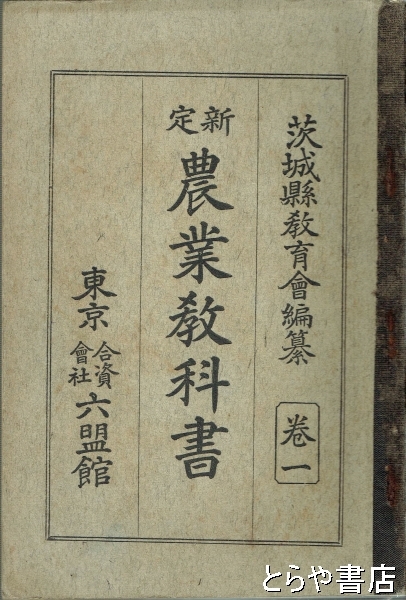 茨城縣敎育會編纂
卷一
新定
農業敎科書
東京
合資
會社
六盟館
とらや書店